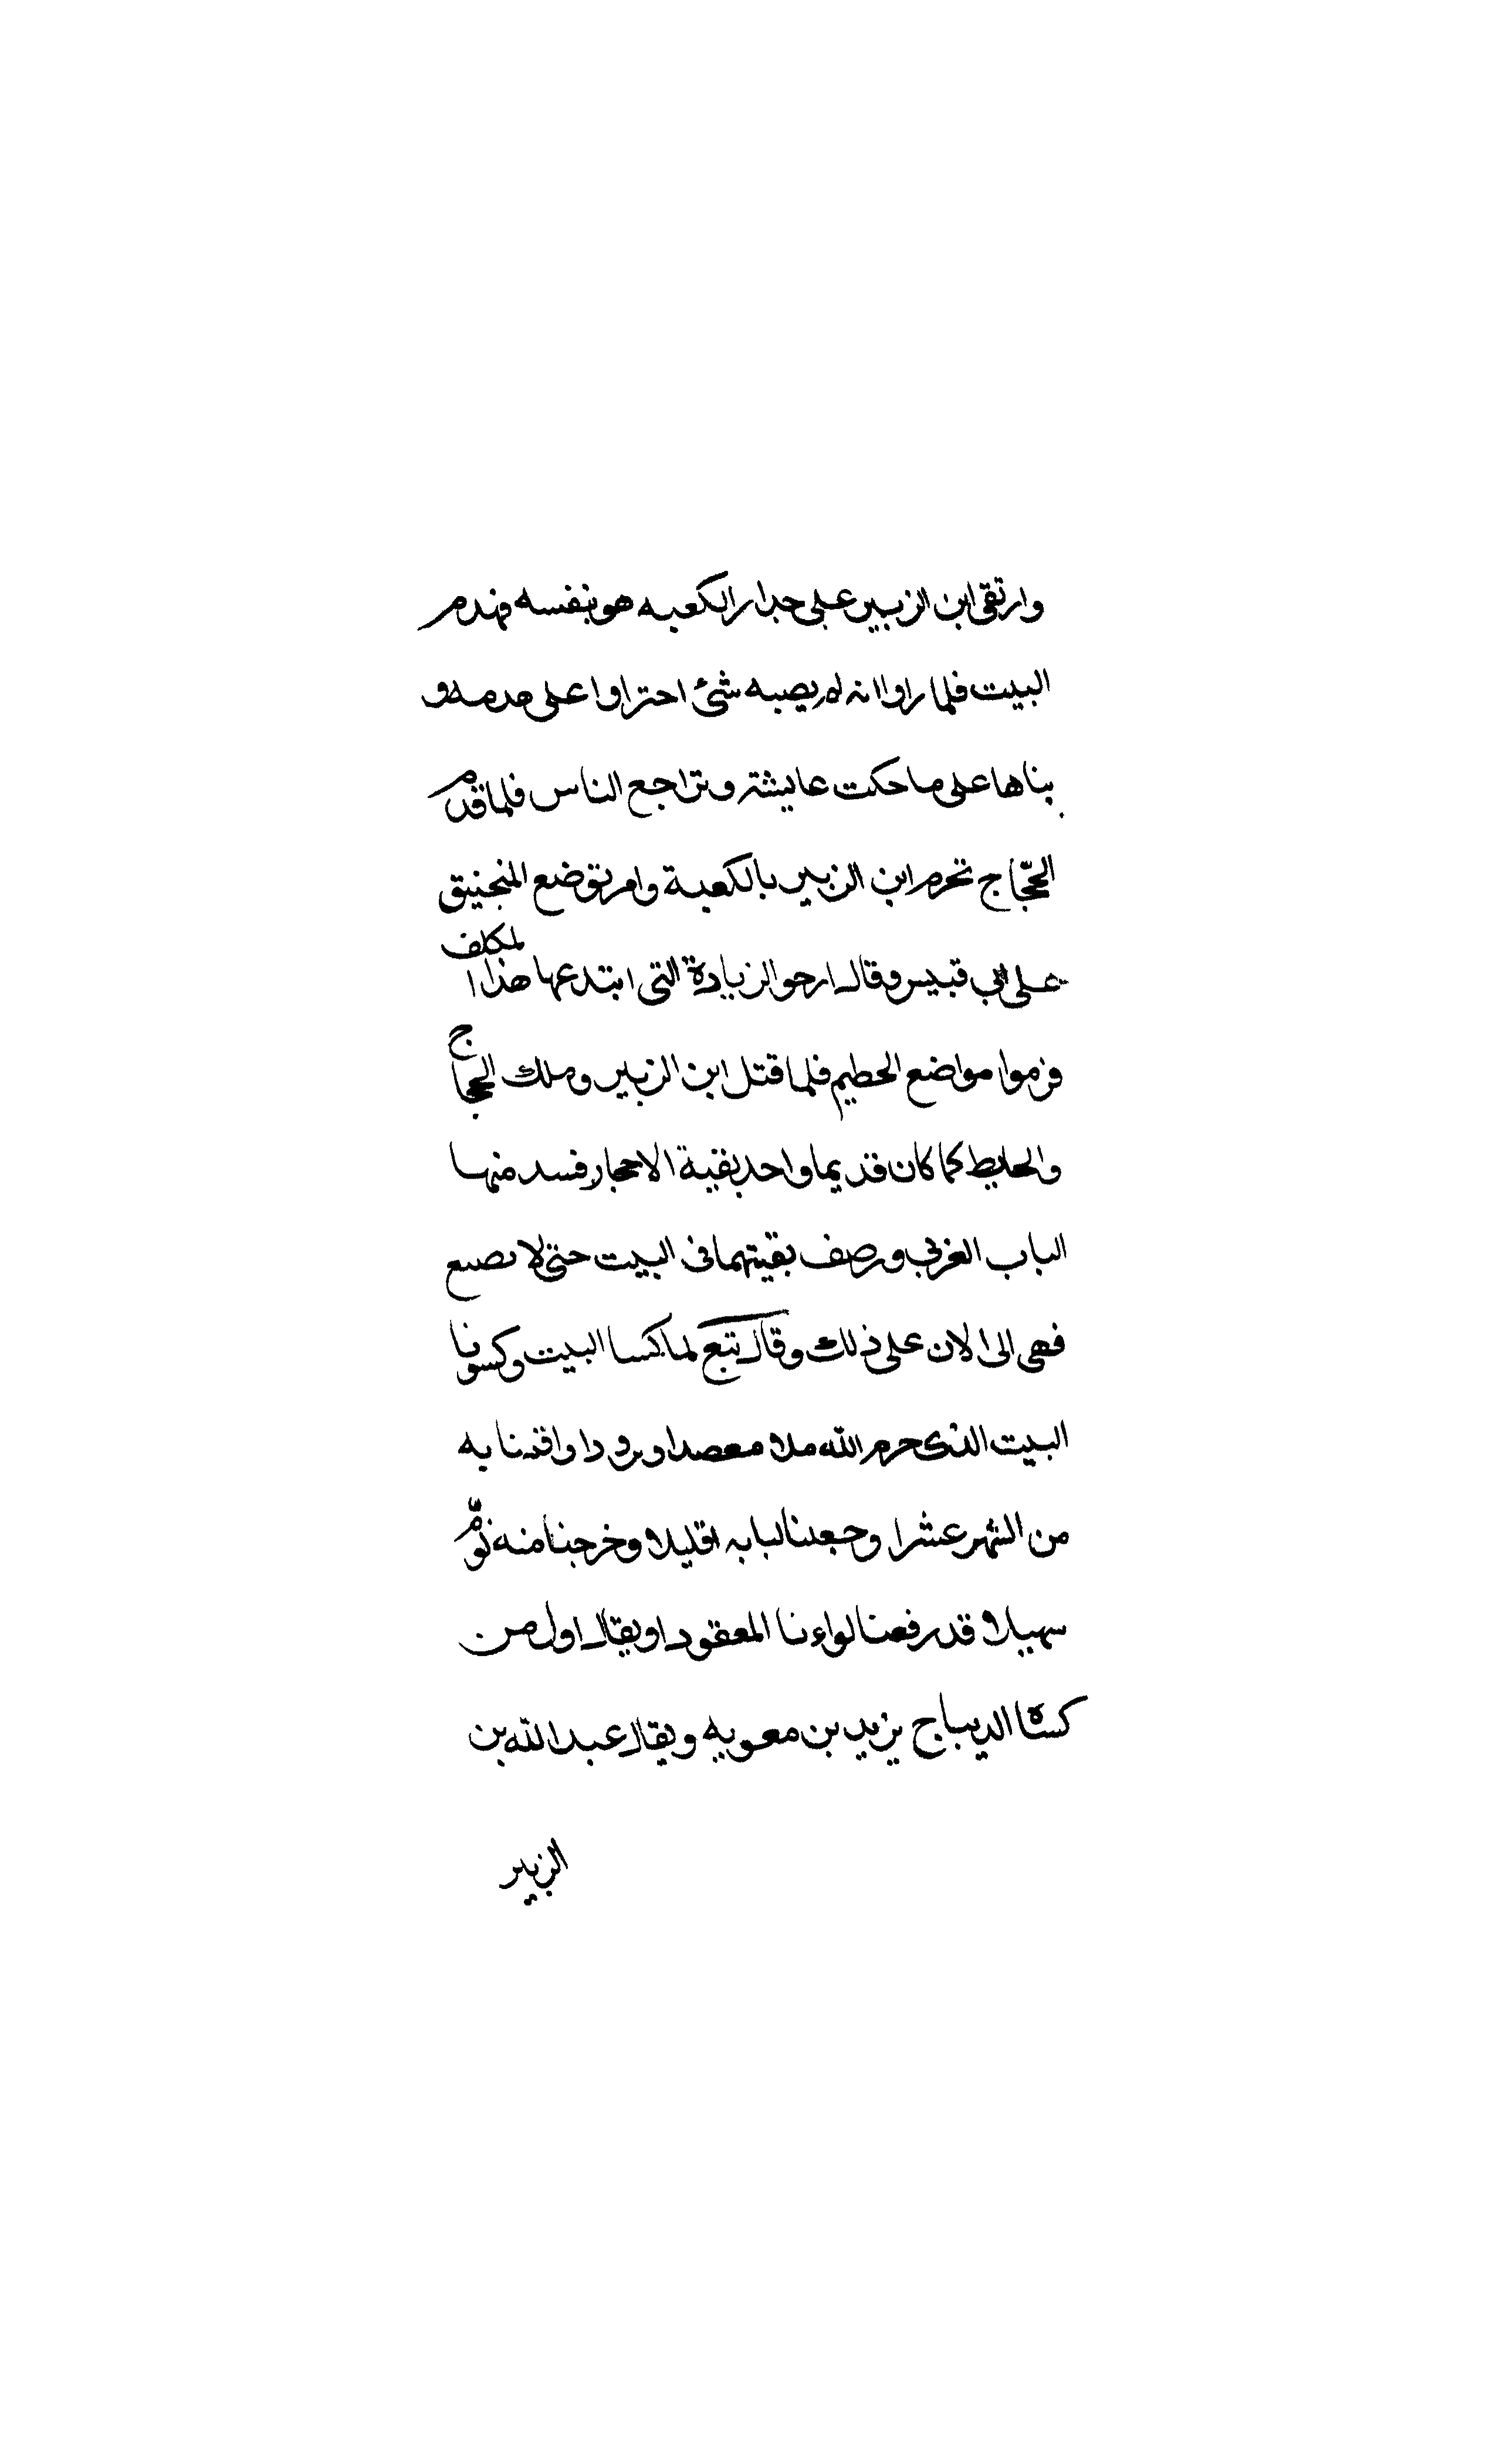 وارتقى ابن الزبير على جدار الكعبه هو بنفسه فهدم
البيت فلما راوا انه لم يصبه شئ اجتراوا على هدمه و
بناها على ما حكت عايشة وتراجع الناس فلما قدم
الحجّاج تحرم ابن الزبير بالكعبة وامر بوضع المنجنيق
على ابي قبيس وقال ارموا الزيادة التى ابتدعها هذا المكلف
فرموا مواضع الحطيم فلما قتل ابن الزبير وملك الحجاج
والحايط كما كان قديما واخد بقية الاحجار فسد منها
الباب الغربي ورصف بقيتهما في البيت حتى لا تصيع
فهى الى الان على ذلك وقال تبع لما كسا البيت وكسونا
البيت الذى حرم الله ملاء معصدا وبرودا واقمنا به
من الشهر عشرا وجعلنا لبابه اقليلا وخرجنا منه نومّ
سهيلا قد رفعنا لواءنا المعقودا ويقال اول من
كساة الديباج يزيد بن معويه ويقال عبد الله بن
الزبير